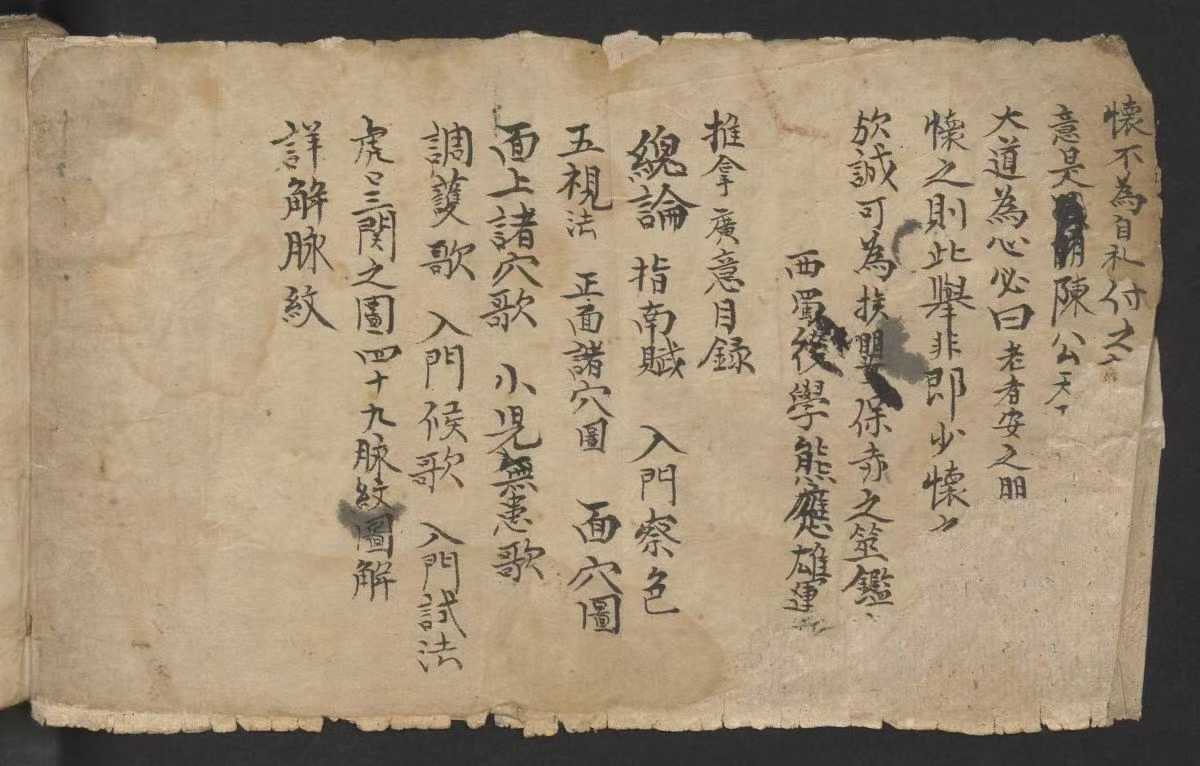 懷不為自私付之
意是陳公天下
大道為心必曰老者安之朋
懷之則此舉非即少懷之
欤誠可為挨嬰保赤之筮鑑
西蜀後學熊應雄運
推拿廣意目録
緫論 指南賦 入門察色
五視法 正面諸穴圖 面穴圖
面上諸穴歌 小児無患歌
調護歌 入門候歌 入門試法
虎口三関之圖四十九脉紋圖解
詳解脉紋